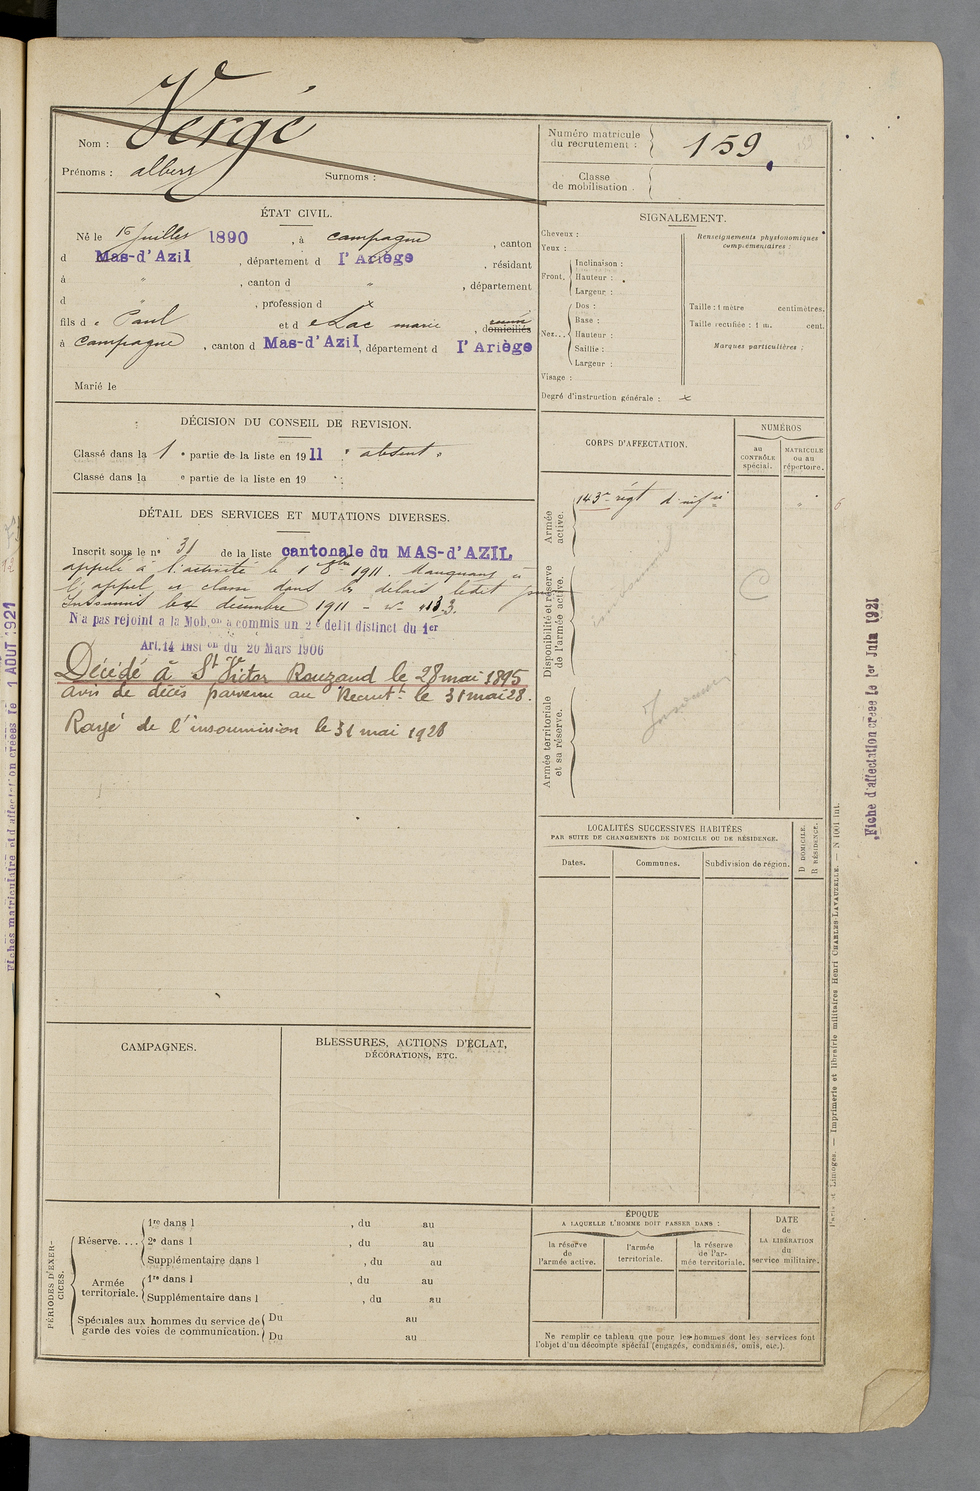 Vergé
Nom :
Prénoms : albert
Surnoms :
Numéro matricule
du recrutement :
159
Classe
de mobilisation
ÉTAT CIVIL.
Né le 16 juillet 1890, à campagne, canton
d Mas-d'Azil, département d l'Ariège, résidant
à " , canton d " , département
d " , profession d x
fils de Paul et de Lac marie, domiciliés
à campagne, canton d Mas-d'Azil, département d l'Ariège
Marié le
SIGNALEMENT.
Cheveux :
Yeux :
Front.
Inclinaison :
Hauteur :
Largeur :
Nez...
Dos :
Base :
Hauteur :
Saillie :
Largeur :
Visage :
Renseignements physionomiques
complémentaires :
Taille : 1 mètre centimètres.
Taille rectifiée : 1 m. cent.
Marques particulières :
Degré d'instruction générale : x
DÉCISION DU CONSEIL DE REVISION.
Classé dans la 1 e partie de la liste en 1911 " absent "
Classé dans la e partie de la liste en 19
DÉTAIL DES SERVICES ET MUTATIONS DIVERSES.
Inscrit sous le n° 31 de la liste cantonale du MAS-d'AZIL
appelé à l'activité le 1 8bre 1911. Manquant à
l'appel
Insoumis le 4 décembre 1911 - n°
N'a pas rejoint a la Mob.on a commis un 2e delit distinct du 1er
Art.14 Inst on du 20 Mars 1906
Décédé à St Victor Rouzaud le 28 mai 1895
avis de décès parvenu au Recrut.t le 31 mai 28.
Rayé de l'insoumission le 31 mai 1928
CORPS D'AFFECTATION.
NUMÉROS
au
CONTRÔLE
spécial.
MATRICULE
ou au
répertoire.
Armée
active.
143e régt d'infie
6
Disponibilité et réserve
de l'armée active.
C
Armée territoriale
et sa réserve.
LOCALITÉS SUCCESSIVES HABITÉES
PAR SUITE DE CHANGEMENTS DE DOMICILE OU DE RÉSIDENCE.
Dates.
Communes.
Subdivision de région.
D DOMICILE.
R RÉSIDENCE.
CAMPAGNES.
BLESSURES, ACTIONS D'ÉCLAT,
DÉCORATIONS, ETC.
PÉRIODES D'EXER-
CICES.
Réserve....
1re dans l , du au
2e dans l , du au
Supplémentaire dans l , du au
Armée
territoriale.
1re dans l , du au
Supplémentaire dans l , du au
Spéciales aux hommes du service de
garde des voies de communication.
Du au
Du au
ÉPOQUE
A LAQUELLE L'HOMME DOIT PASSER DANS :
la réserve
de
l'armée active.
l'armée
territoriale.
la réserve
de l'ar-
mée territoriale.
DATE
de
LA LIBÉRATION
du
service militaire.
Ne remplir ce tableau que pour les hommes dont les services font
l'objet d'un décompte spécial (engagés, condamnés, omis, etc.).
Paris et Limoges. — Imprimerie et librairie militaires Henri CHARLES-LAVAUZELLE. — N 1001 int.
Fiche d'affectation créée le 1er Juin 1921
Fiches matriculaire et d'affectation créées le 1 AOUT 1921